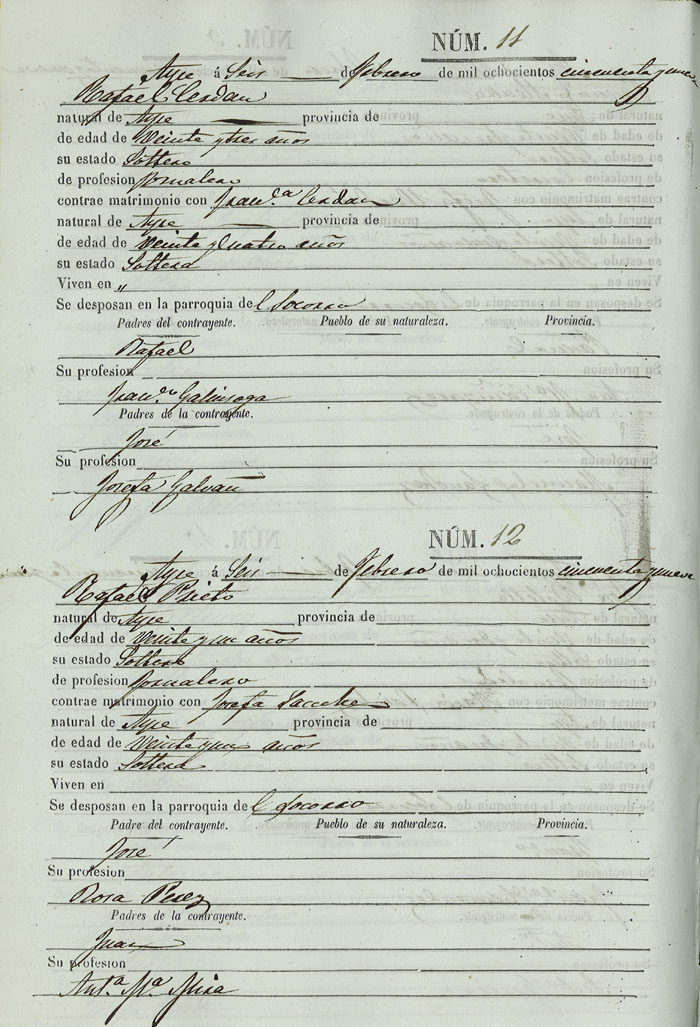 NÚM. 11
Aspe á Seis de febrero de mil ochocientos cincuenta y nueve
Rafael Cerdan
natural de Aspe provincia de
de edad de Veinte y tres años
su estado Soltero
de profesion Jornalero
contrae matrimonio con Fran.ca Cerdan
natural de Aspe provincia de
de edad de Veinte y Cuatro años
su estado Soltera
Viven en „
Se desposan en la parroquia del Socorro
Padres del contrayente. Pueblo de su naturaleza. Provincia.
Rafael
Su profesion
Galinsoga
Padres de la contrayente.
José
Su profesion
Josefa Galvañ
NÚM. 12
Aspe á Seis de febrero de mil ochocientos cincuenta y nueve
Rafael Prieto
natural de Aspe provincia de
de edad de Veinte y un años
su estado Soltero
de profesion Jornalero
contrae matrimonio con Josefa Sanche
natural de Aspe provincia de
de edad de Veinte y un años
su estado Soltera
Viven en
Se desposan en la parroquia del Socorro
Padre del contrayente. Pueblo de su naturaleza. Provincia.
José
Su profesion
Rosa Perez
Padres de la contrayente.
Juan
Su profesion
Ant.a M.a Mira